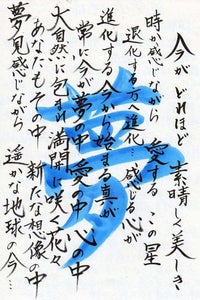 今がどれほど素晴しく美しき
時が感じながら愛するこの星
退化する方へ進化…感じる心が
進化する今から始まる真が
常に今が夢の中愛の中心の中
大自然に包まれ満開に咲く花々
あなたもその中新たな想像の中
夢見感じながら遥かな地球の今…
夢